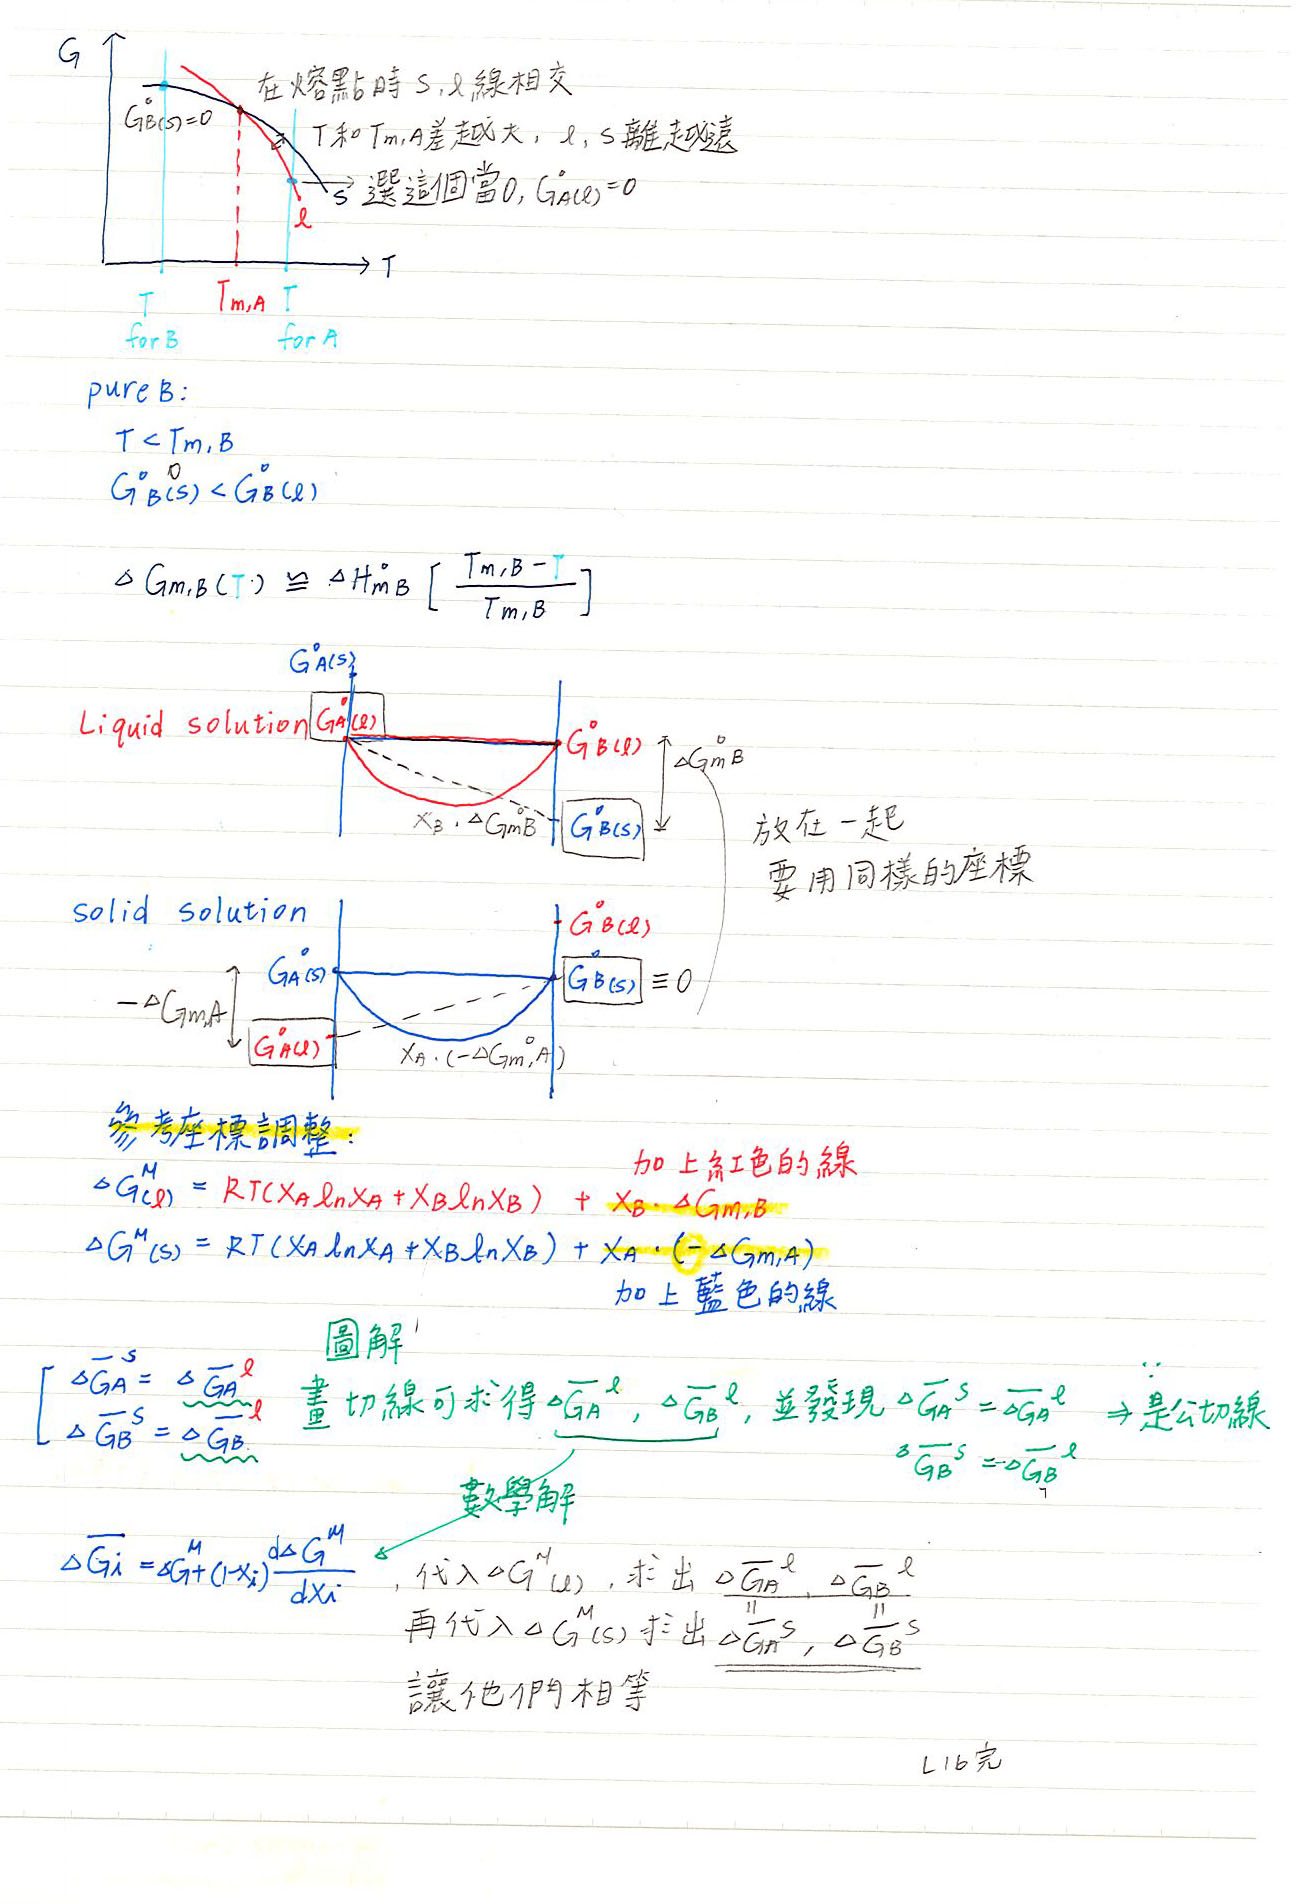 G
在熔點時 s, l 線相交
G°B(s)=0
T和Tm,A差越大, l, s 離越遠
s 選這個當0, G°A(l)=0
l
T
T Tm,A T
for B for A
pure B:
T < Tm,B
G°B(s) < G°B(l)
0
ΔGm,B(T) ≌ ΔH°mB [ (Tm,B - T) / Tm,B ]
G°A(s)
Liquid solution G°A(l) G°B(l) ΔG°mB
XB · ΔG°mB G°B(s)
放在一起
要用同樣的座標
solid solution G°B(l)
G°A(s) G°B(s) ≡ 0
-ΔGm,A
G°A(l) XA · (-ΔG°m,A)
參考座標調整:
加上紅色的線
ΔG^M(l) = RT(XA lnXA + XB lnXB) + XB · ΔGm,B
ΔG^M(s) = RT(XA lnXA + XB lnXB) + XA · (-ΔGm,A)
加上藍色的線
圖解
ΔG̅A^s = ΔG̅A^l 畫切線可求得ΔG̅A^l, ΔG̅B^l, 並發現 ΔG̅A^s = ΔG̅A^l ⇒ 是公切線
ΔG̅B^s = ΔG̅B^l ΔG̅B^s = ΔG̅B^l
數學解
ΔG̅i = ΔG^M + (1-Xi) dΔG^M / dXi , 代入ΔG^M(l), 求出 ΔG̅A^l, ΔG̅B^l
再代入ΔG^M(s) 求出 ΔG̅A^s, ΔG̅B^s
讓他們相等
L16完